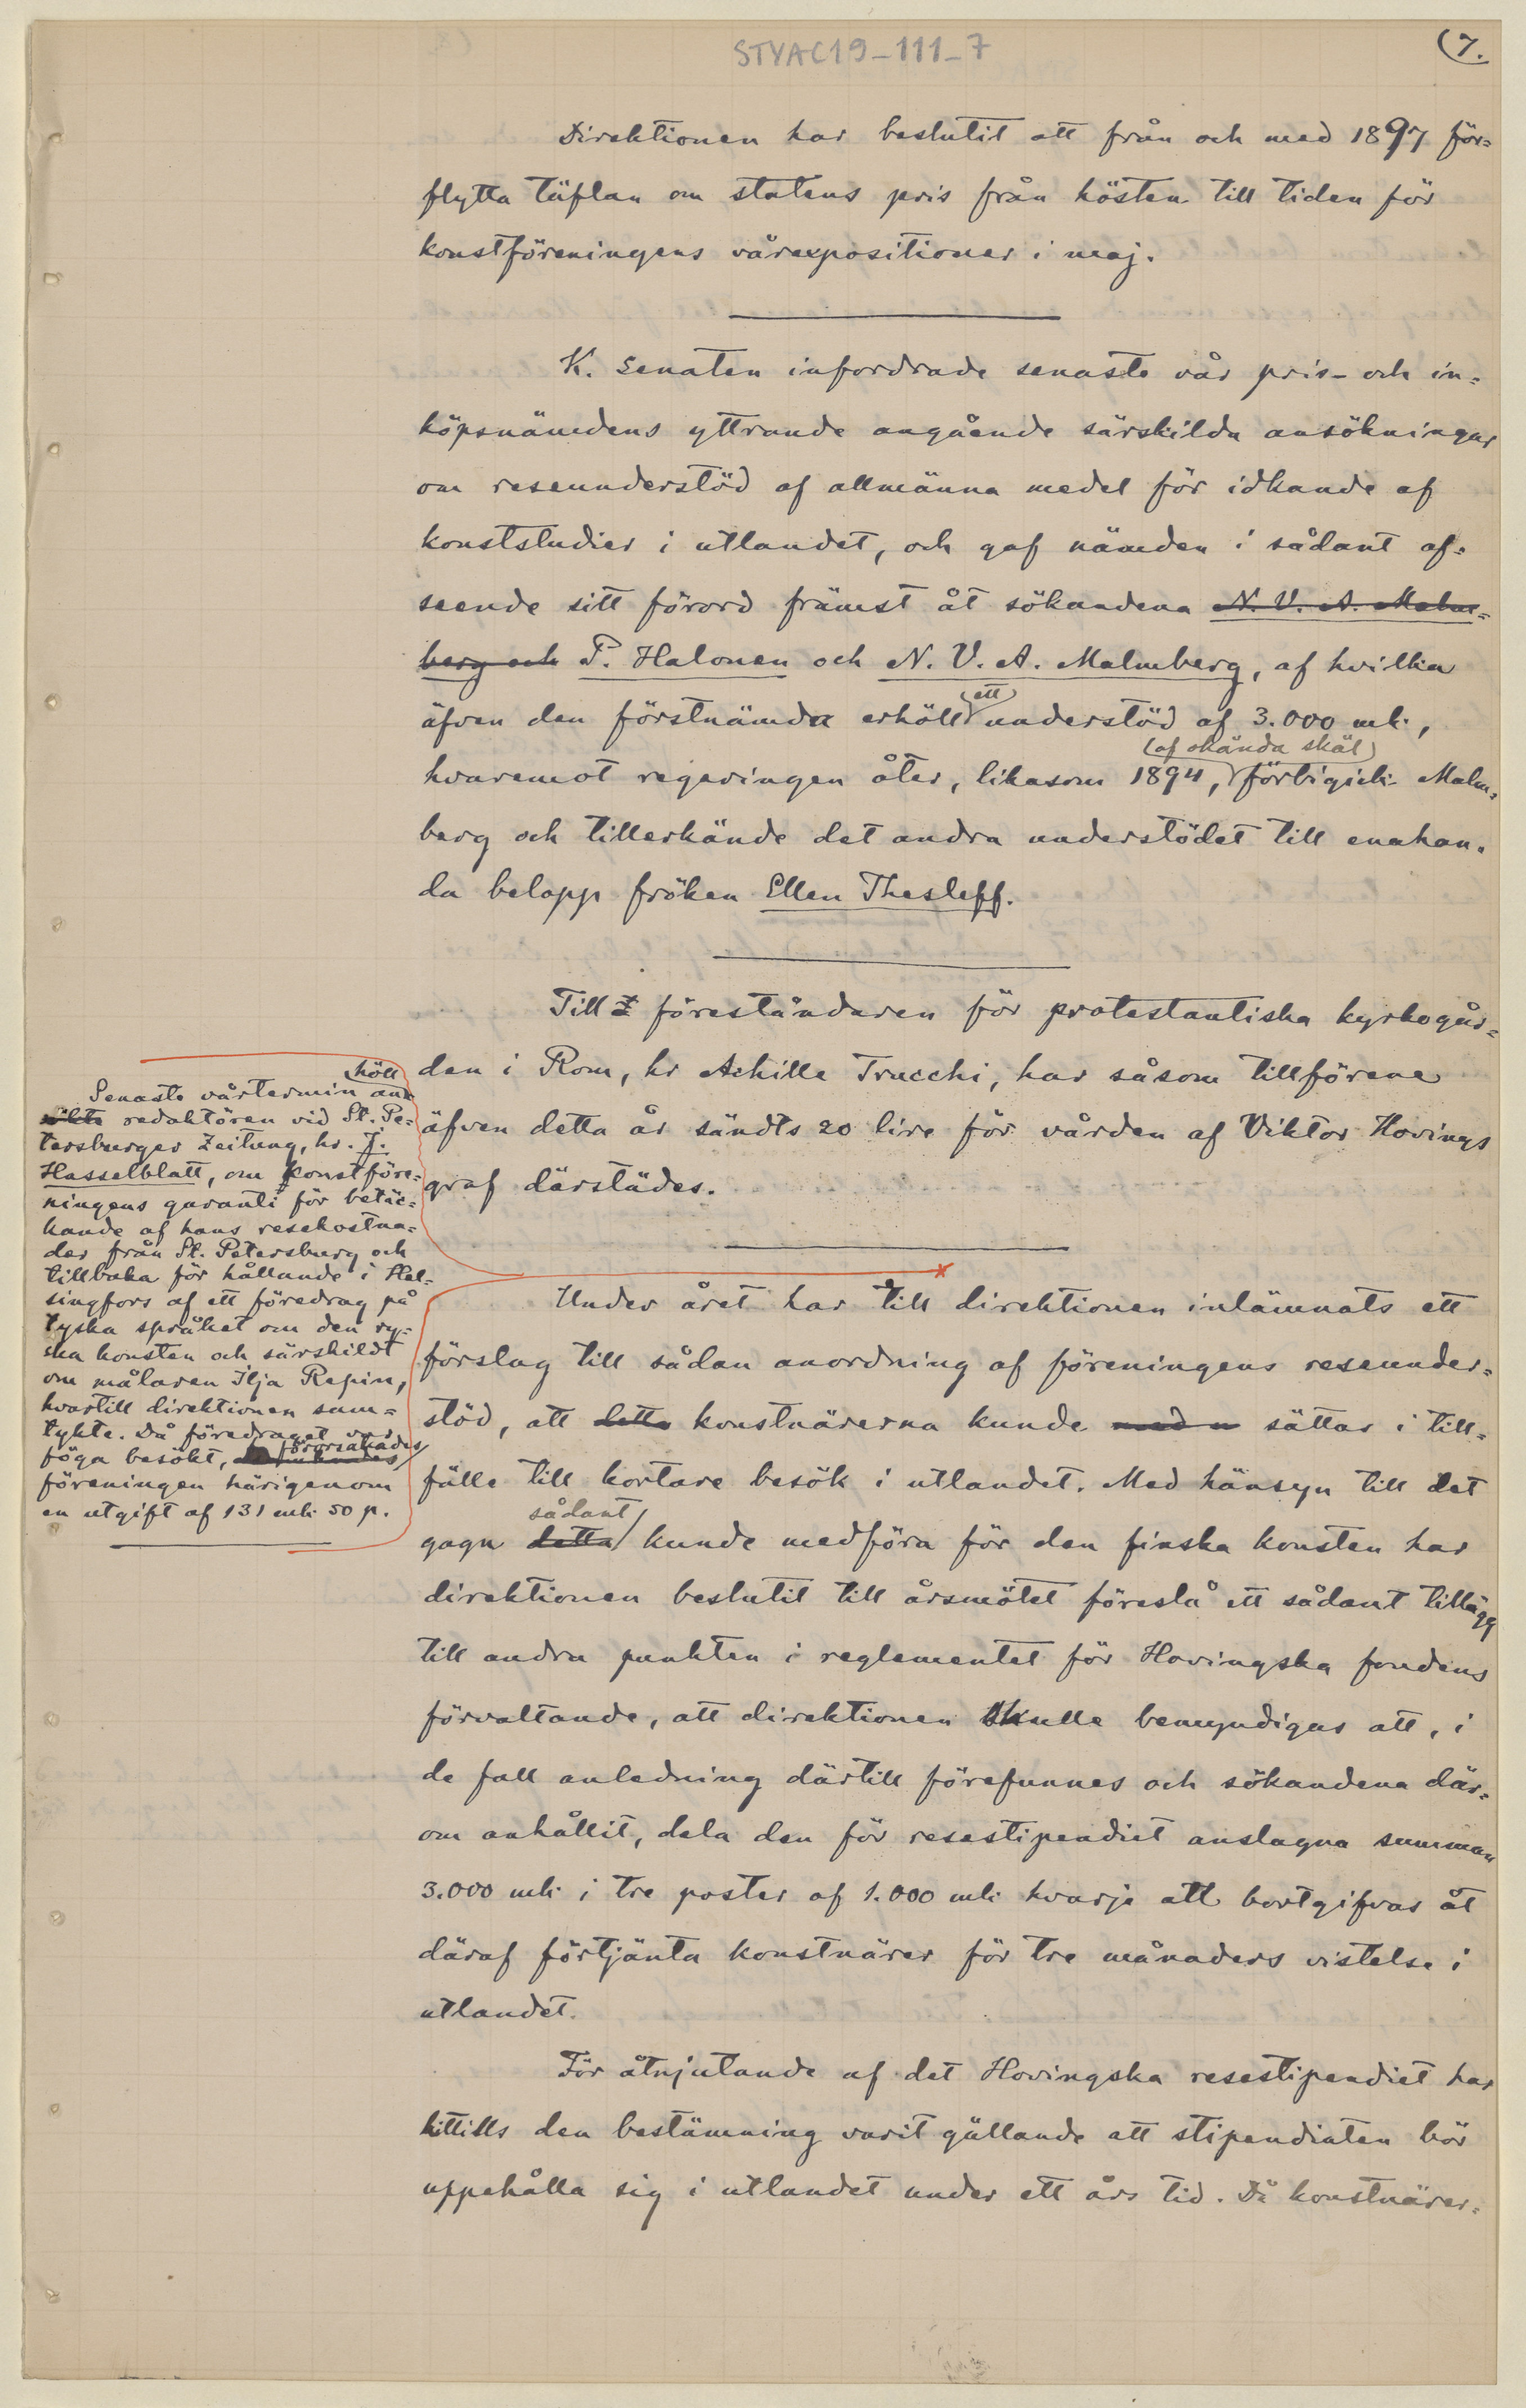 STYAC19-111-7
(7.
Direktionen har beslutit att från och med 1897 för=
flytta täflan om statens pris från hösten till tiden för
konstföreningens vårexpositioner i maj.
K. Senaten infordrade senaste vår pris- och in=
köpsnämdens yttrande angående särskilda ansökningar
om reseunderstöd af allmänna medel för idkande af
konststudier i utlandet, och gaf nämden i sådant af=
seende sitt förord främst åt sökandena N. V. A. Malm=
berg och P. Halonen och N. V. A. Malmberg, af hvilka
ett
äfven den förstnämda erhöll understöd af 3.000 mk.,
(af okända skäl)
hvaremot regeringen åter, likasom 1894, förbigick Malm=
berg och tillerkände det andra understödet till enahan=
da belopp fröken Ellen Thesleff.
Till föreståndaren för protestantiska kyrkogår=
den i Rom, hr Achille Trucchi, har såsom tillförene
äfven detta år sändts 20 lire för vården af Viktor Hovings
graf därstädes.
höll
Senaste vårtermin an
sökte redaktören vid St. Pe=
tersburger Zeitung, hr. J.
Hasselblatt, om konstföre=
ningens garanti för betäc=
kande af hans resekostna=
der från St. Petersburg och
tillbaka för hållande i Hel=
singfors af ett föredrag på
tyska språket om den ry=
ska konsten och särskildt
om målaren Ilja Repin,
hvartill direktionen sam=
tykte. Då föredraget var
förorsakades
föga besökt,
föreningen härigenom
en utgift af 131 mk 50 p.
Under året har till direktionen inlämnats ett
förslag till sådan anordning af föreningens reseunder=
stöd, att detta konstnärerna kunde med sättas i till=
fälle till kortare besök i utlandet. Med hänsyn till det
sådant
gagn detta kunde medföra för den finska konsten har
direktionen beslutit till årsmötet föreslå ett sådant tillägg
till andra punkten i reglementet för Hovingska fondens
förvaltande, att direktionen skulle bemyndigas att, i
de fall anledning därtill förefunnes och sökandena där=
om anhållit, dela den för resestipendiet anslagna summan
3.000 mk i tre poster af 1.000 mk hvarje att bortgifvas åt
däraf förtjänta konstnärer för tre månaders vistelse i
utlandet.
För åtnjutande af det Hovingska resestipendiet har
hittills den bestämning varit gällande att stipendiaten bör
uppehålla sig i utlandet under ett års tid. Då konstnärer=